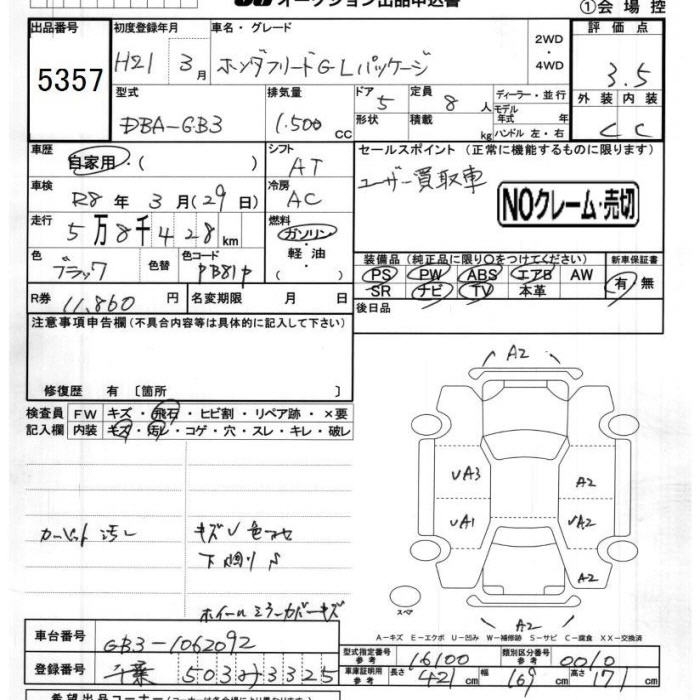 オークション出品申込書
①会場控
出品番号
5357
初度登録年月
H21 3月
車名・グレード
ホンダフリードG Lパッケージ
2WD
・
4WD
評価点
3.5
外装 内装
C C
型式
DBA-GB3
排気量
1.500 CC
ドア
5
定員
8人
形状
積載
kg
ディーラー・並行
モデル年式 年
ハンドル 左・右
車歴
自家用・( )
シフト
AT
車検
R8年 3月(29日)
冷房
AC
走行
5万8千428km
燃料
ガソリン・
軽油
・( )
色
ブラック
色替
色コード
PB81P
R券
11,860円
名変期限 月 日
セールスポイント (正常に機能するものに限ります)
ユーザー買取車
NOクレーム・売切
装備品(純正品に限り○をつけてください)
新車保証書
PS PW ABS エアB AW
SR ナビ TV 本革
有・無
後日品
注意事項申告欄(不具合内容等は具体的に記入して下さい)
修復歴 有 〔箇所 〕
検査員
記入欄
FW キズ・飛石・ヒビ割・リペア跡・×要
内装 キズ・汚レ・コゲ・穴・スレ・キレ・破レ
カーペット 汚レ
キズU色アセ
下廻りS
ホイールミラーカバーキズ
A2
UA3
A2
UA1
UA2
A2
A2
スペア
A-キズ E-エクボ U-凹み W-補修跡 S-サビ C-腐食 XX-交換済
車台番号
GB3-1062092
登録番号
千葉 503み3325
型式指定番号
参考
16100
類別区分番号
参考
0010
車庫証明用
参考
長さ
421cm
幅
169cm
高さ
171cm
希望出品コーナー